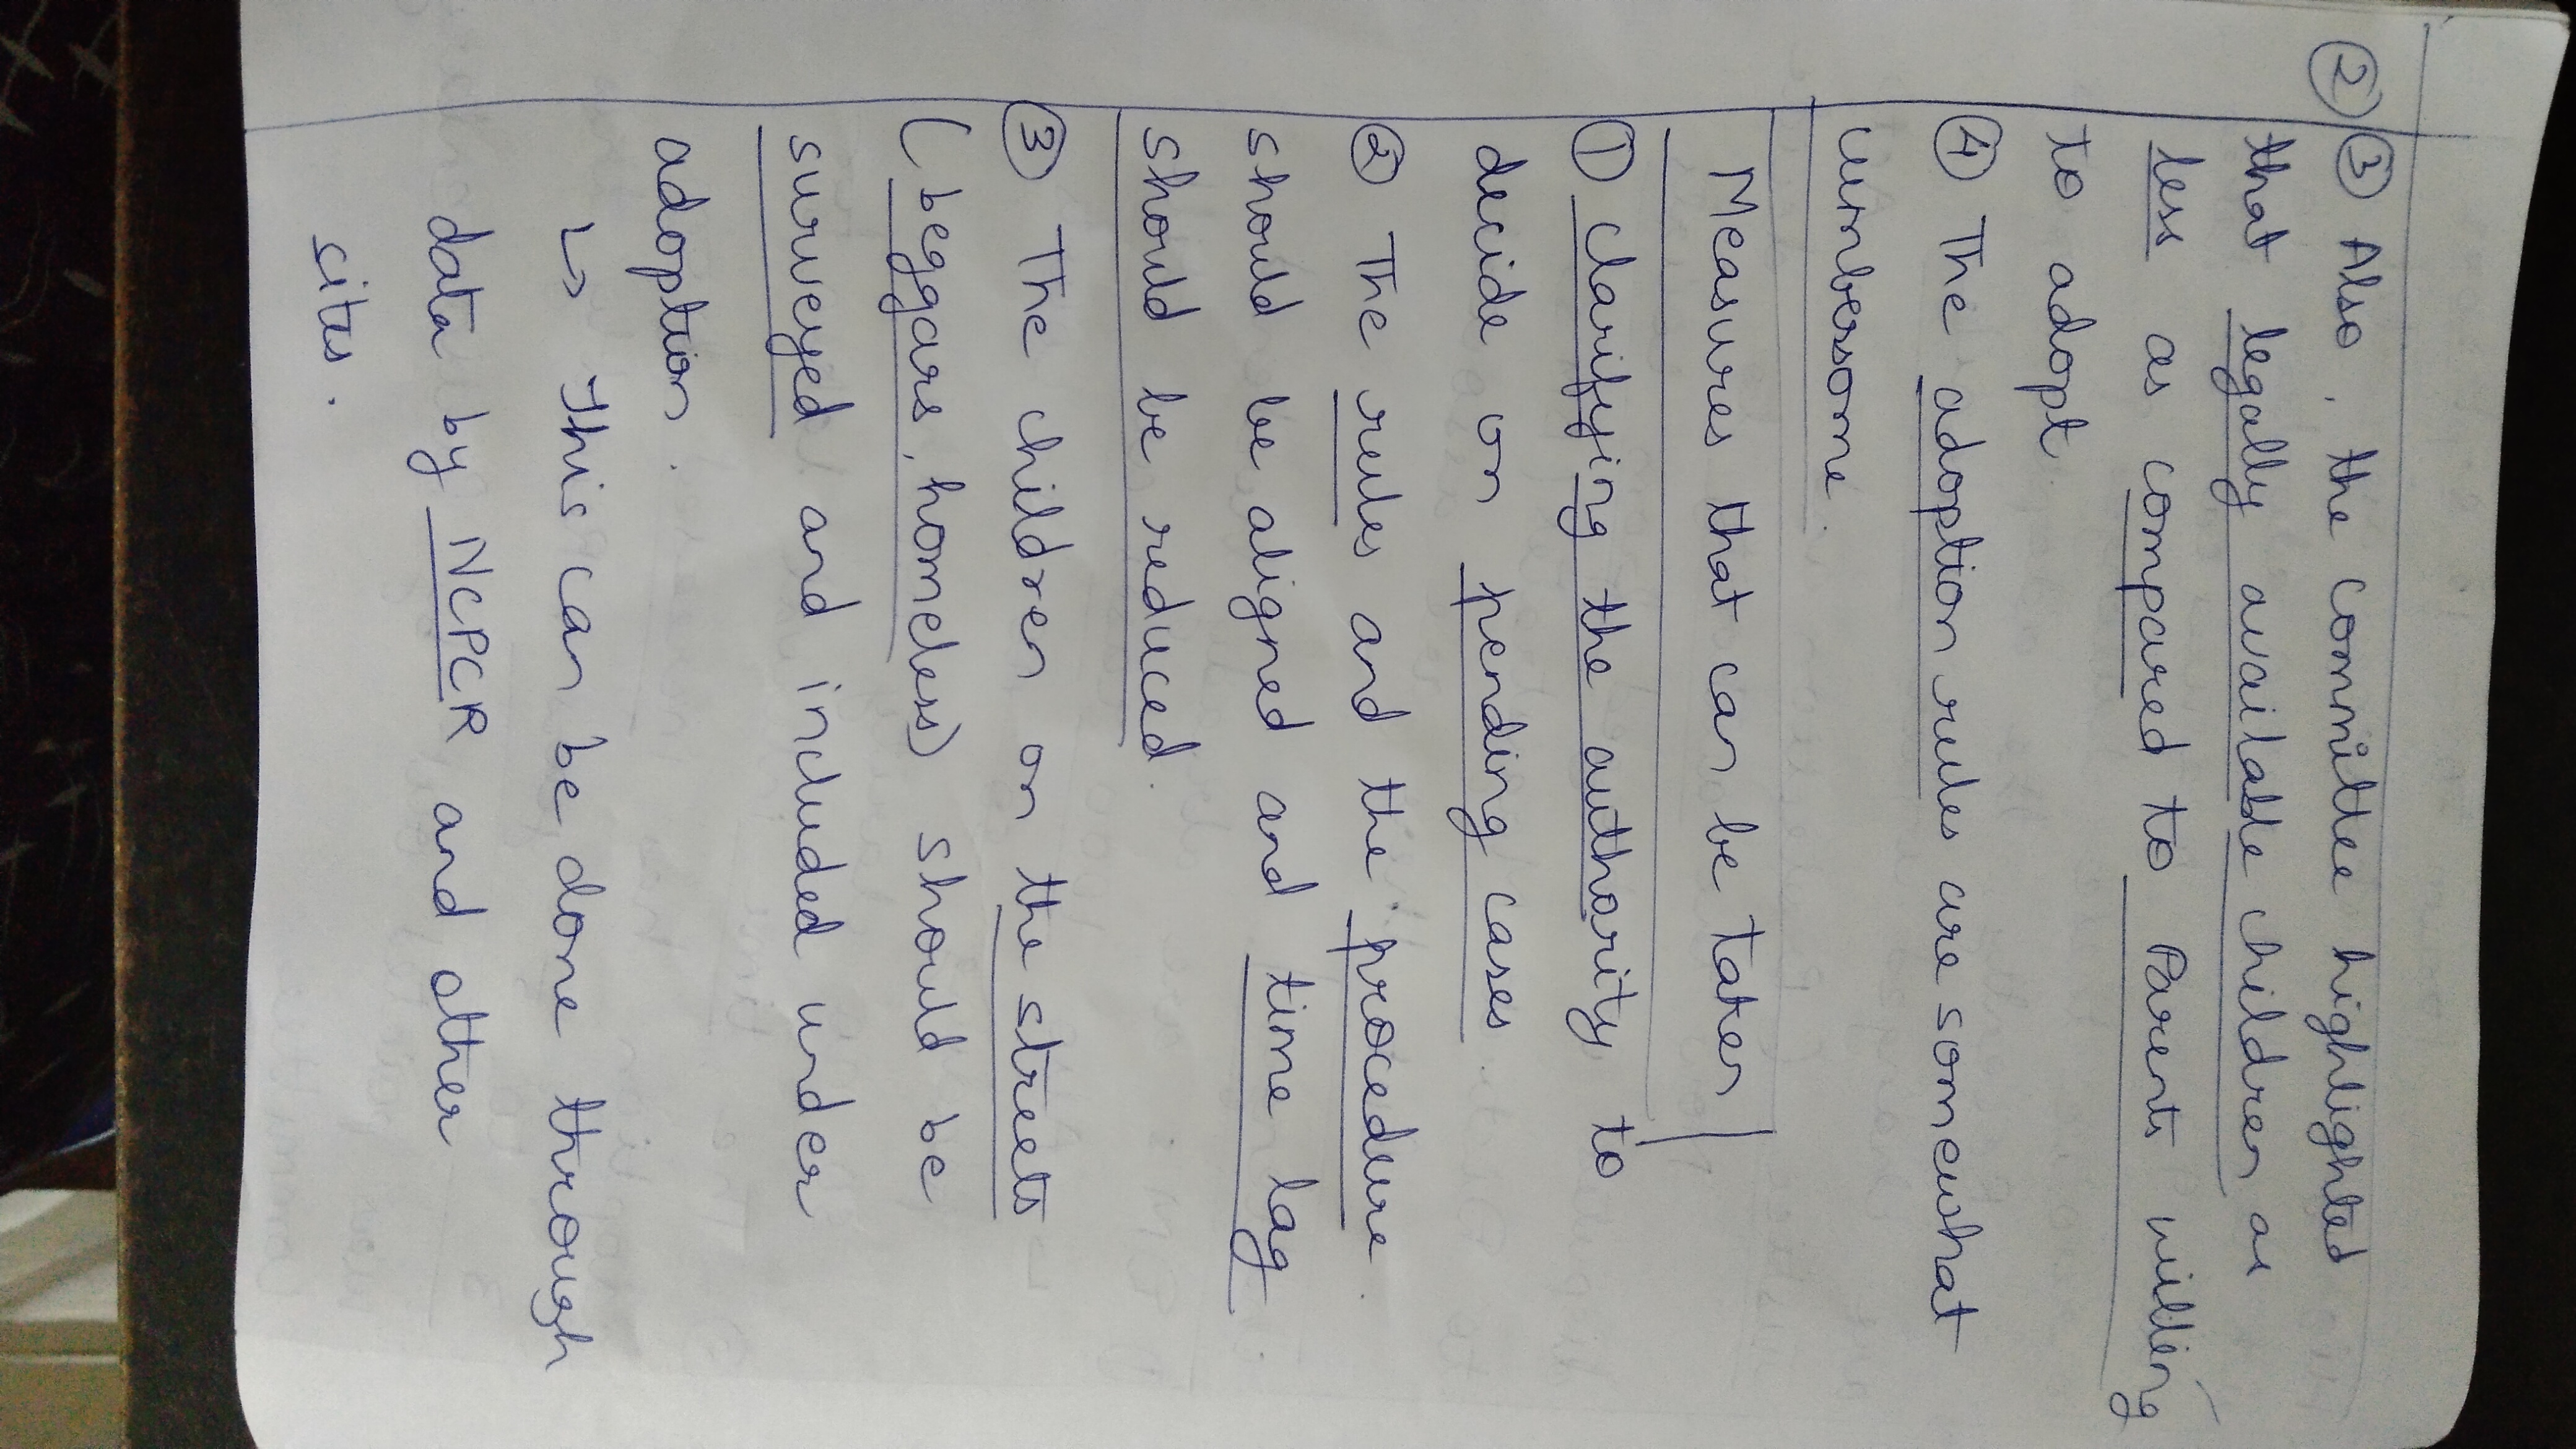 ② ③ Also, the committee highlighted
that legally available children are
less as compared to Parents willing
to adopt.
④ The adoption rules are somewhat
cumbersome.
Measures that can be taken
① Clarifying the authority to
decide on pending cases.
② The rules and the procedure
should be aligned and time lag
should be reduced.
③ The children on the streets
(beggars, homeless) should be
surveyed and included under
adoption.
↳ This can be done through
data by NCPCR and other
sites.